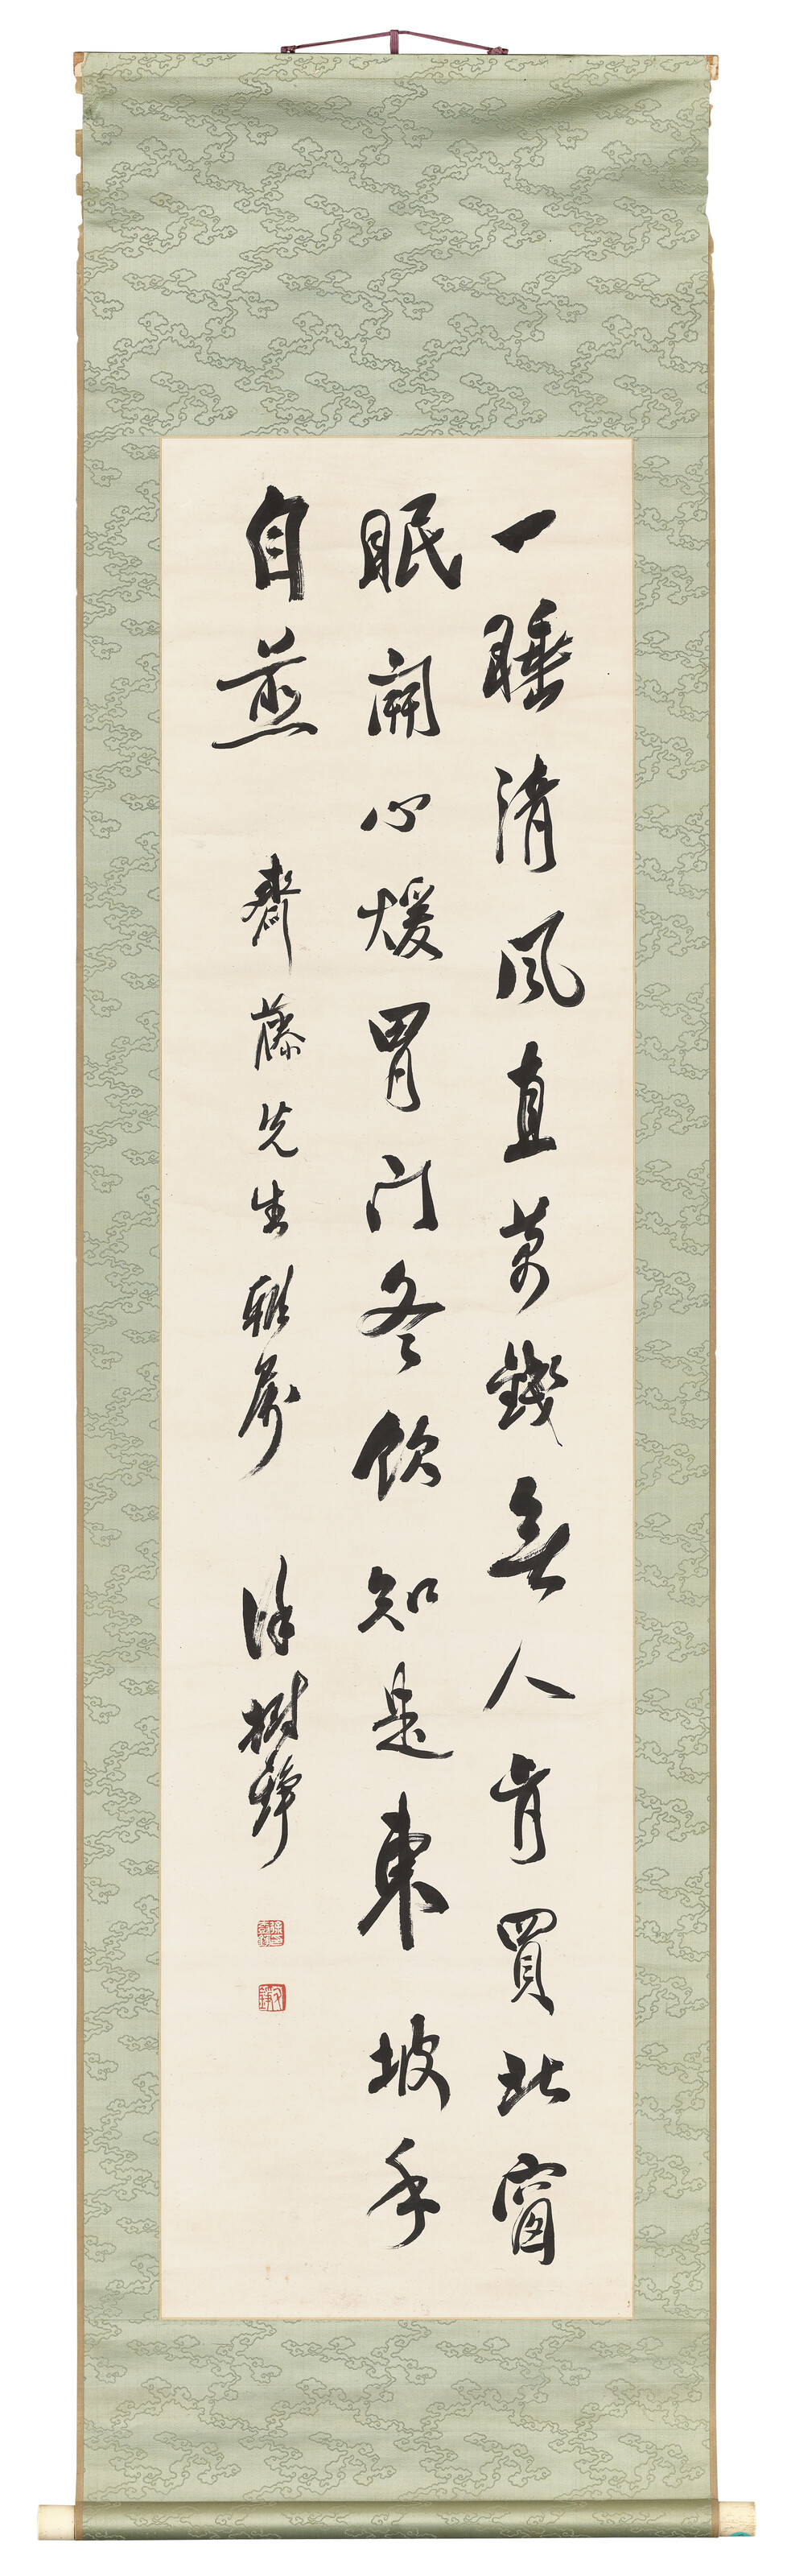 一睡清風直萬錢無人肯買北窗
眠開心煖胃門冬飲知是東坡手
自煎 齋藤先生雅屬 徐樹錚